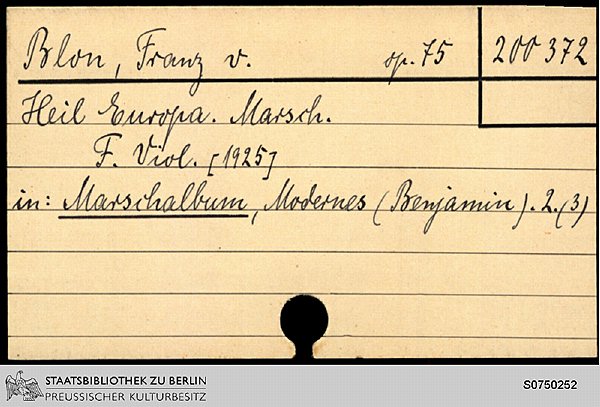 Blon, Franz v. op. 75 200 372
Heil Europa. Marsch.
F. Viol. [1925]
in: Marschalbum, Modernes (Benjamin). 2.(3)
STAATSBIBLIOTHEK ZU BERLIN
PREUSSISCHER KULTURBESITZ
S0750252